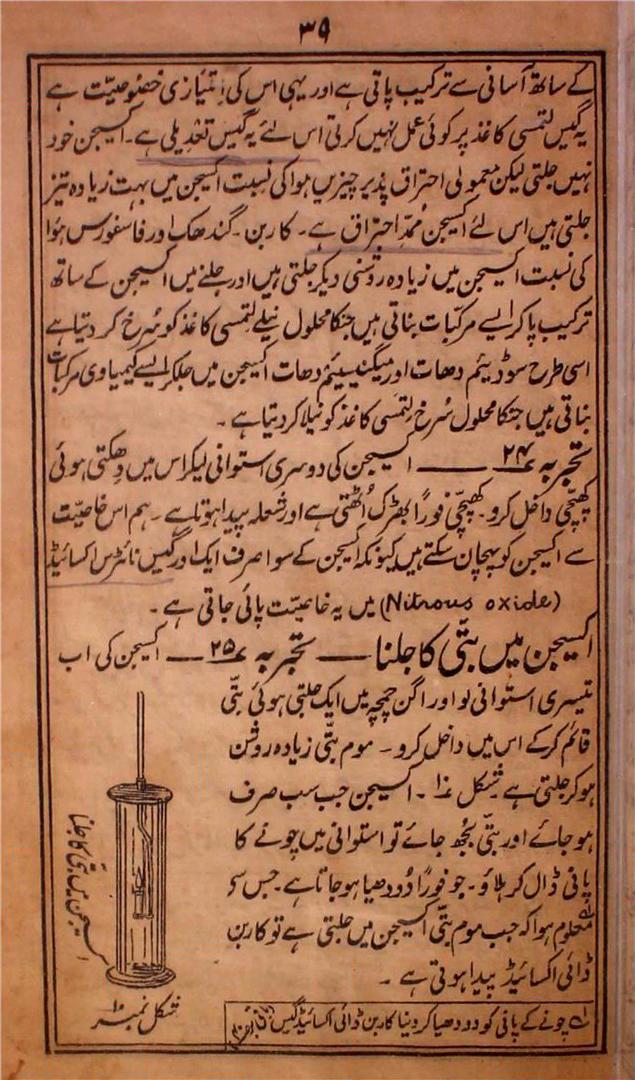 ۳۹
کے ساتھ آسانی سے ترکیب پاتی ہے اور یہی اس کی اِمتیازی خصُوصیّت ہے
یہ گیس لٹمسی کاغذ پر کوئی عمل نہیں کرتی اس لئے یہ گیس تعدیلی ہے۔ اکسیجن خود
نہیں جلتی لیکن معمولی احتراق پذیر چیزیں ہوا کی نسبت اکسیجن میں بہت زیادہ تیز
جلتی ہیں اس لئے اکسیجن مُمدِّ احتراق ہے۔ کاربن۔ گندھک اور فاسفورس ہوا
کی نسبت اکسیجن میں زیادہ روشنی دیکر جلتی ہیں اور جلنے میں اکسیجن کے ساتھ
ترکیب پا کر ایسے مرکّبات بناتی ہیں جنکا محلول نیلے لٹمسی کاغذ کو سُرخ کر دیتا ہے
اسی طرح سوڈیئم دھات اور میگنیسیئم دھات اکسیجن میں جلکر ایسے کیمیاوی مرکبات
بناتی ہیں جنکا محلول سُرخ لٹمسی کاغذ کو نیلا کر دیتا ہے۔
تجربہ ۲۴ — اکسیجن کی دوسری استوانی لیکر اس میں دہکتی ہوئی
کھپچّی داخل کرو۔ کھپچّی فوراً بھڑک اُٹھتی ہے اور شعلہ پیدا ہوتا ہے۔ ہم اس خاصیّت
سے اکسیجن کو پہچان سکتے ہیں کیونکہ اکسیجن کے سوا صرف ایک اور گیس نائٹرس اکسائیڈ
(Nitrous oxide) میں یہ خاصیّت پائی جاتی ہے۔
اکسیجن میں بتّی کا جلنا — تجربہ ۲۵ — اکسیجن کی اب
تیسری استوانی لو اور اگن چمچہ میں ایک جلتی ہوئی بتّی
قائم کرکے اس میں داخل کرو۔ موم بتّی زیادہ روشن
ہوکر جلتی ہے۔ شکل ۱۰۔ اکسیجن جب سب صرف
ہو جائے اور بتّی بُجھ جائے تو استوانی میں چونے کا
پانی ڈال کر ہلاؤ۔ جو فوراً دُودھیا ہو جاتا ہے۔ جس سے
معلوم ہوا کہ جب موم بتّی اکسیجن میں جلتی ہے تو کاربن
ڈائی اکسائیڈ پیدا ہوتی ہے۔
اکسیجن میں بتی کا جلنا
شکل نمبر ۱۰
لے چونے کے پانی کو دودھیا کر دینا کاربن ڈائی اکسائیڈ گیس